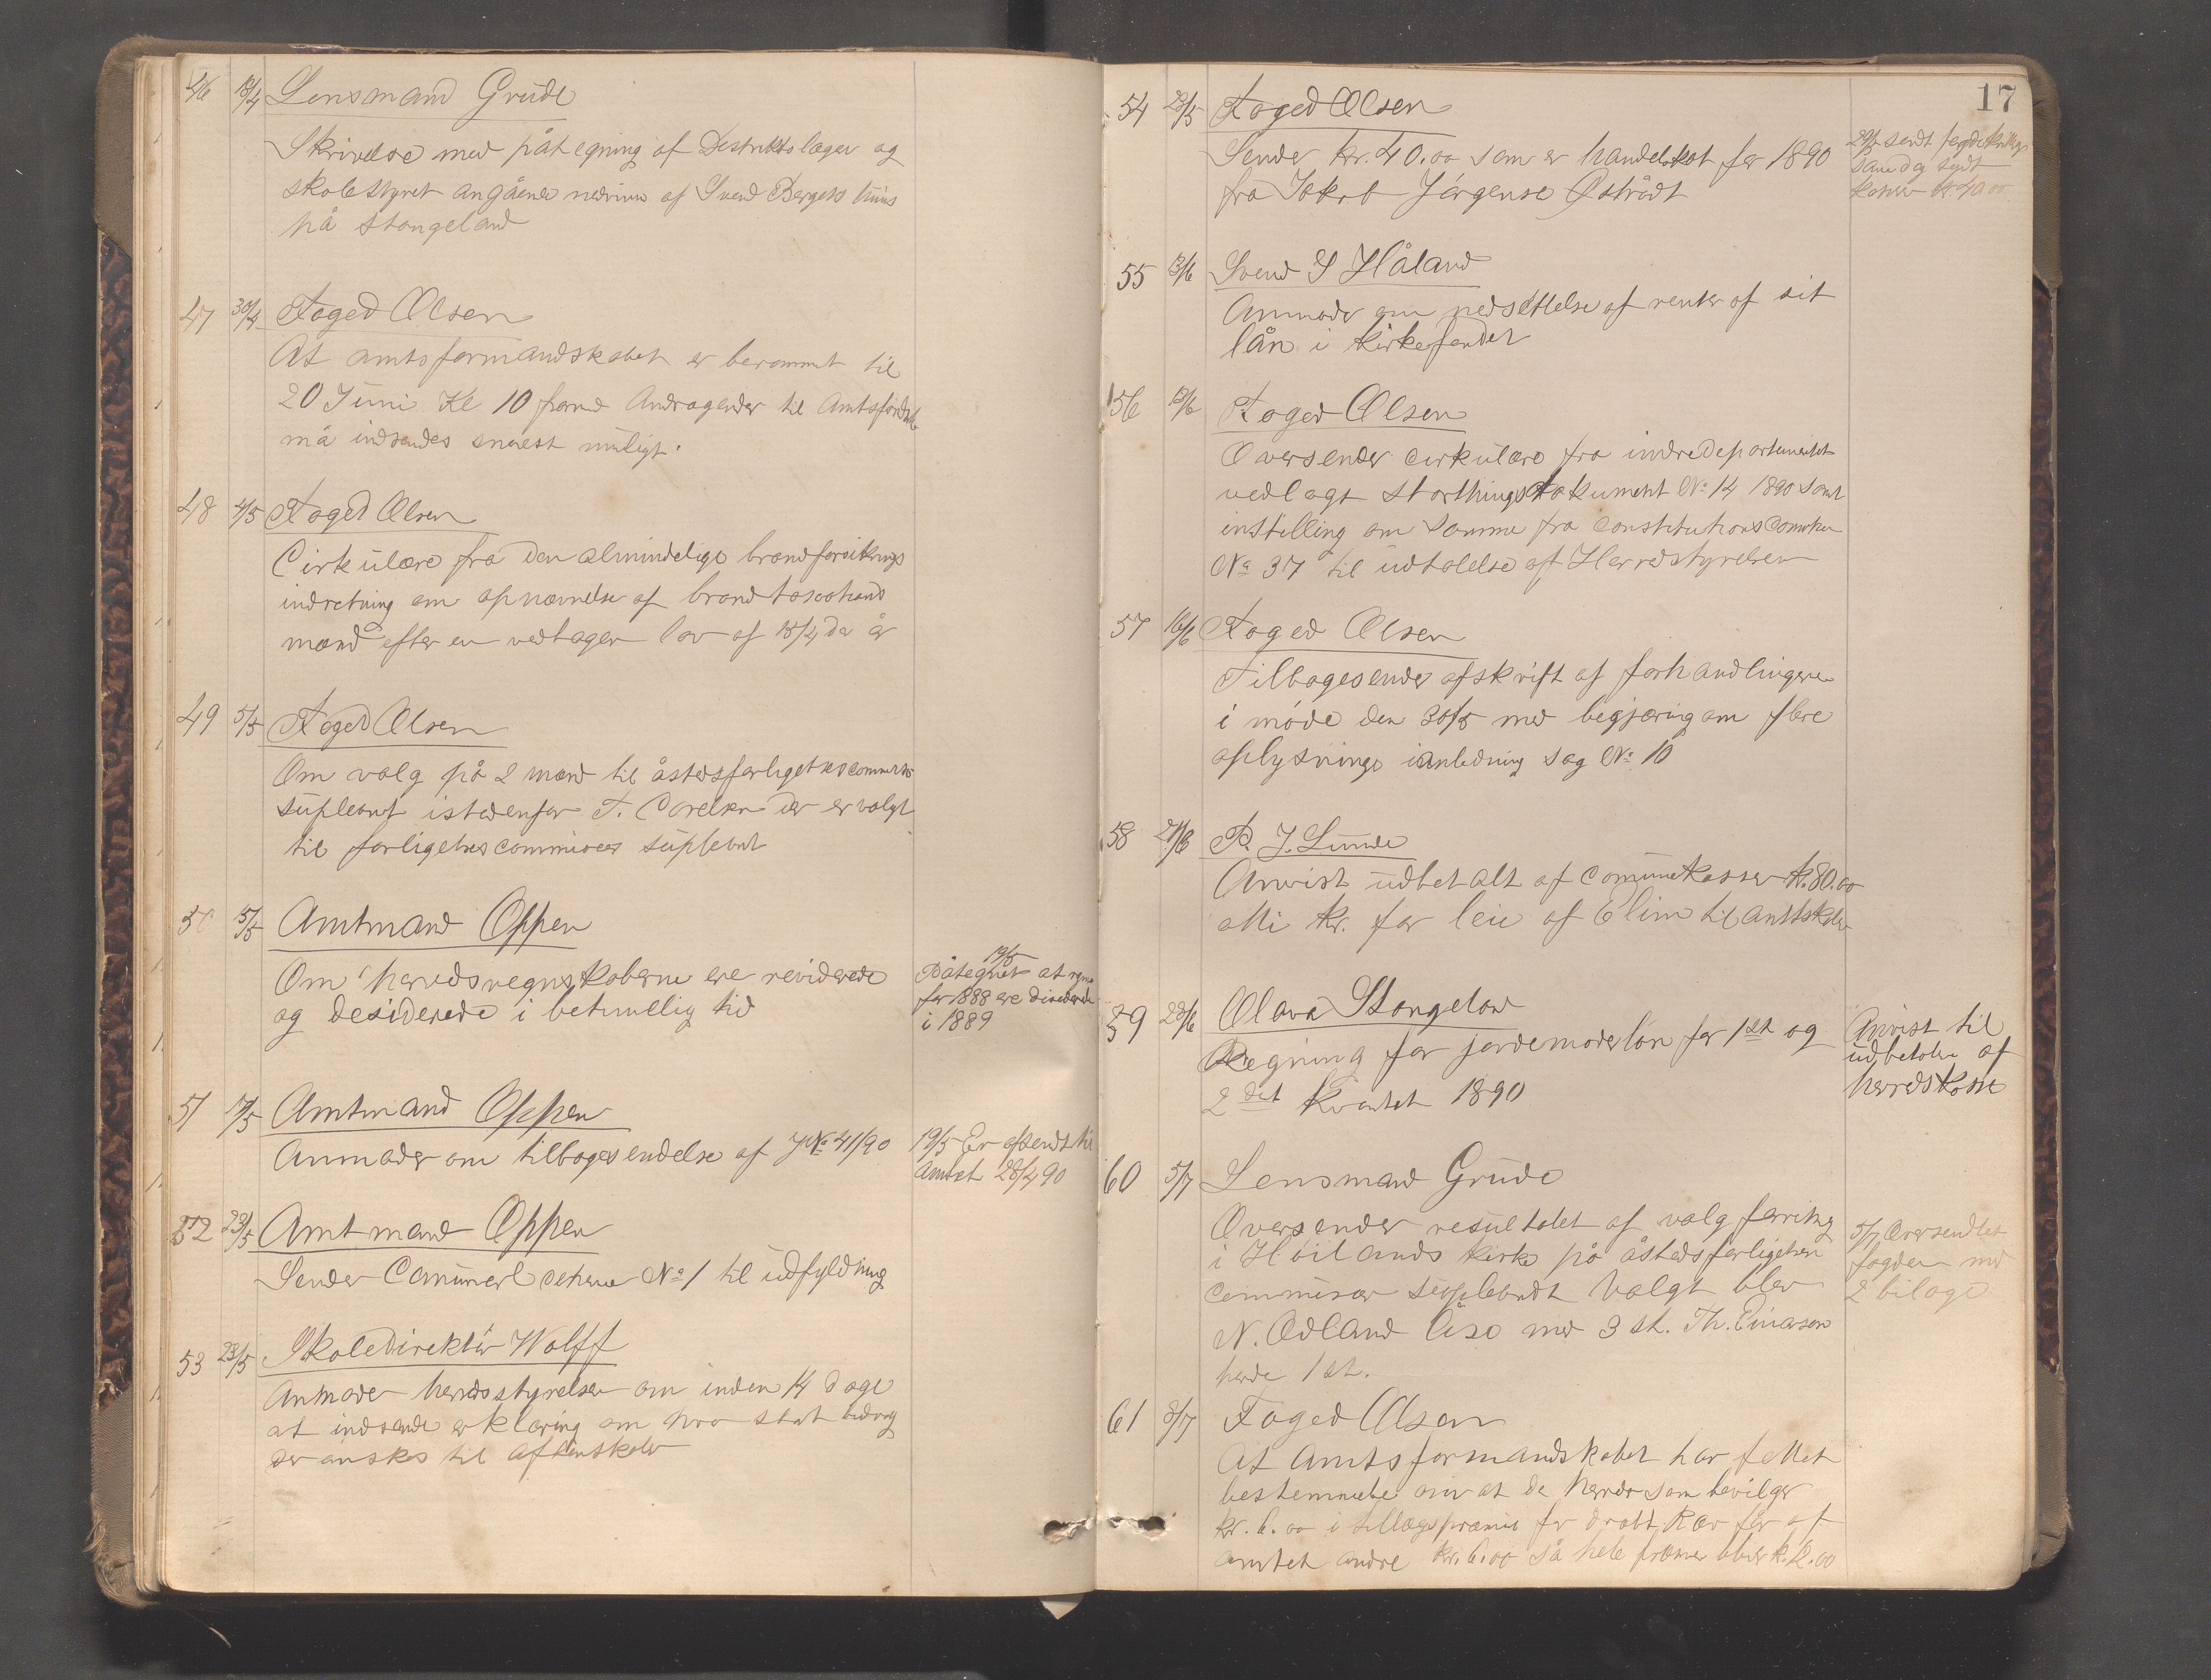 46 18/4 Lensmand Grude
Skrivelse med påtegning af Destriktslægen og
skolestyret angående nedrivn af Svend Bergets huus
på Stangeland
47 30/4 Foged Olsen
At amtsformandskabet er berammet til
20 Juni Kl 10 form Andragender til Amtsfordsk
må indsendes snarest muligt.
48 4/5 Foged Olsen
Cirkulære fra den almindelige brandforsikrings
indretning om opnævnelse af brandtaxations
mænd efter en vedtagen lov af 18/4 da år
49 5/5 Foged Olsen
Om valg på 2 mænd til åstedsforligelses commiss
supleant istedenfor T. der er valgt
til forligelses commisæs supleant
50 5/5 Amtmand Oppen
Om herredsregnskaberne ere reviderede
og desiderede i betimellig tid
19/5
Påtegnet at rgns
for 1888 ere
i 1889
51 17/5 Amtmand Oppen
Anmoder om tilbagesendelse af J No 41/90
19/5 Er afsendt til
Amtet 28/4 90
52 23/5 Amtmand Oppen
Sender schema No 1 til udfyldning
53 23/5 Skoledirektør Wolff
Anmoder herredsstyrelsen om inden 14 dage
at indsende erklæring om hvor stort bidrag
der ønskes til aftenskoler
17
54 23/5 Foged Olsen
Sender kr. 40.00 som er handelskat for 1890
fra Jakob Jörgense Östrådt
29/5 sendt
samdag sendt
kassen kr 40.00
55 13/6 Svend S Håland
Anmoder om nedsættelse af renter af sit
lån i kirkefondet
56 13/6 Foged Olsen
Oversender cirkulære fra indredepartementet
vedlagt Storthingsdokument No 14 1890 samt
instilling om samme fra constitutionscomiteen
No 37 til udtalelse af Herredstyrelsen
57 16/6 Foged Olsen
Tilbagesender afskrift af forhandlingerne
i møde den 30/5 med begjæring om flere
oplysninge ianledning sag No 10
58 21/6 P. J. Lunde
Anvist udbetalt af comunekassen kr. 80.00
otti kr. for leie af Elim til amtskolen
59 28/6 Olava Stangelan
Regning for jordemoderløn for 1ste og
2det kvartet 1890
Anvist til
udbetaln af
herredskassen
60 5/7 Lensmand Grude
Oversender resultatet af valg forretning
i Høilands kirke på åstedsforligelsen
commisær supleandt Valgt blev
N. Ødland med 3 st. Th. Einarsen
1 st.
5/7 Oversendtes
fogden med
2 bilage
61 8/7 Foged Olsen
At Amtsformandskabet har fattet
bestemmelse om at de herreder som bevilger
kr. 6.00 i tillægspræmie for dræbt Ræv får af
amtet andre kr. 6.00 så hele præmien bliver k. 12.00